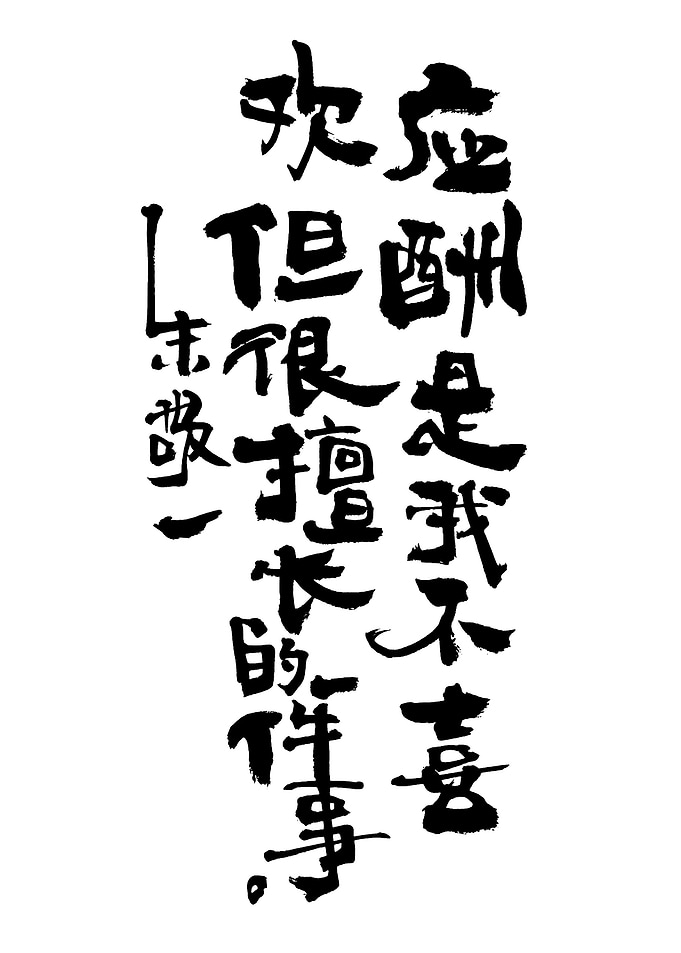 应酬是我不喜
欢但很擅长的一件事。
——朱敬一